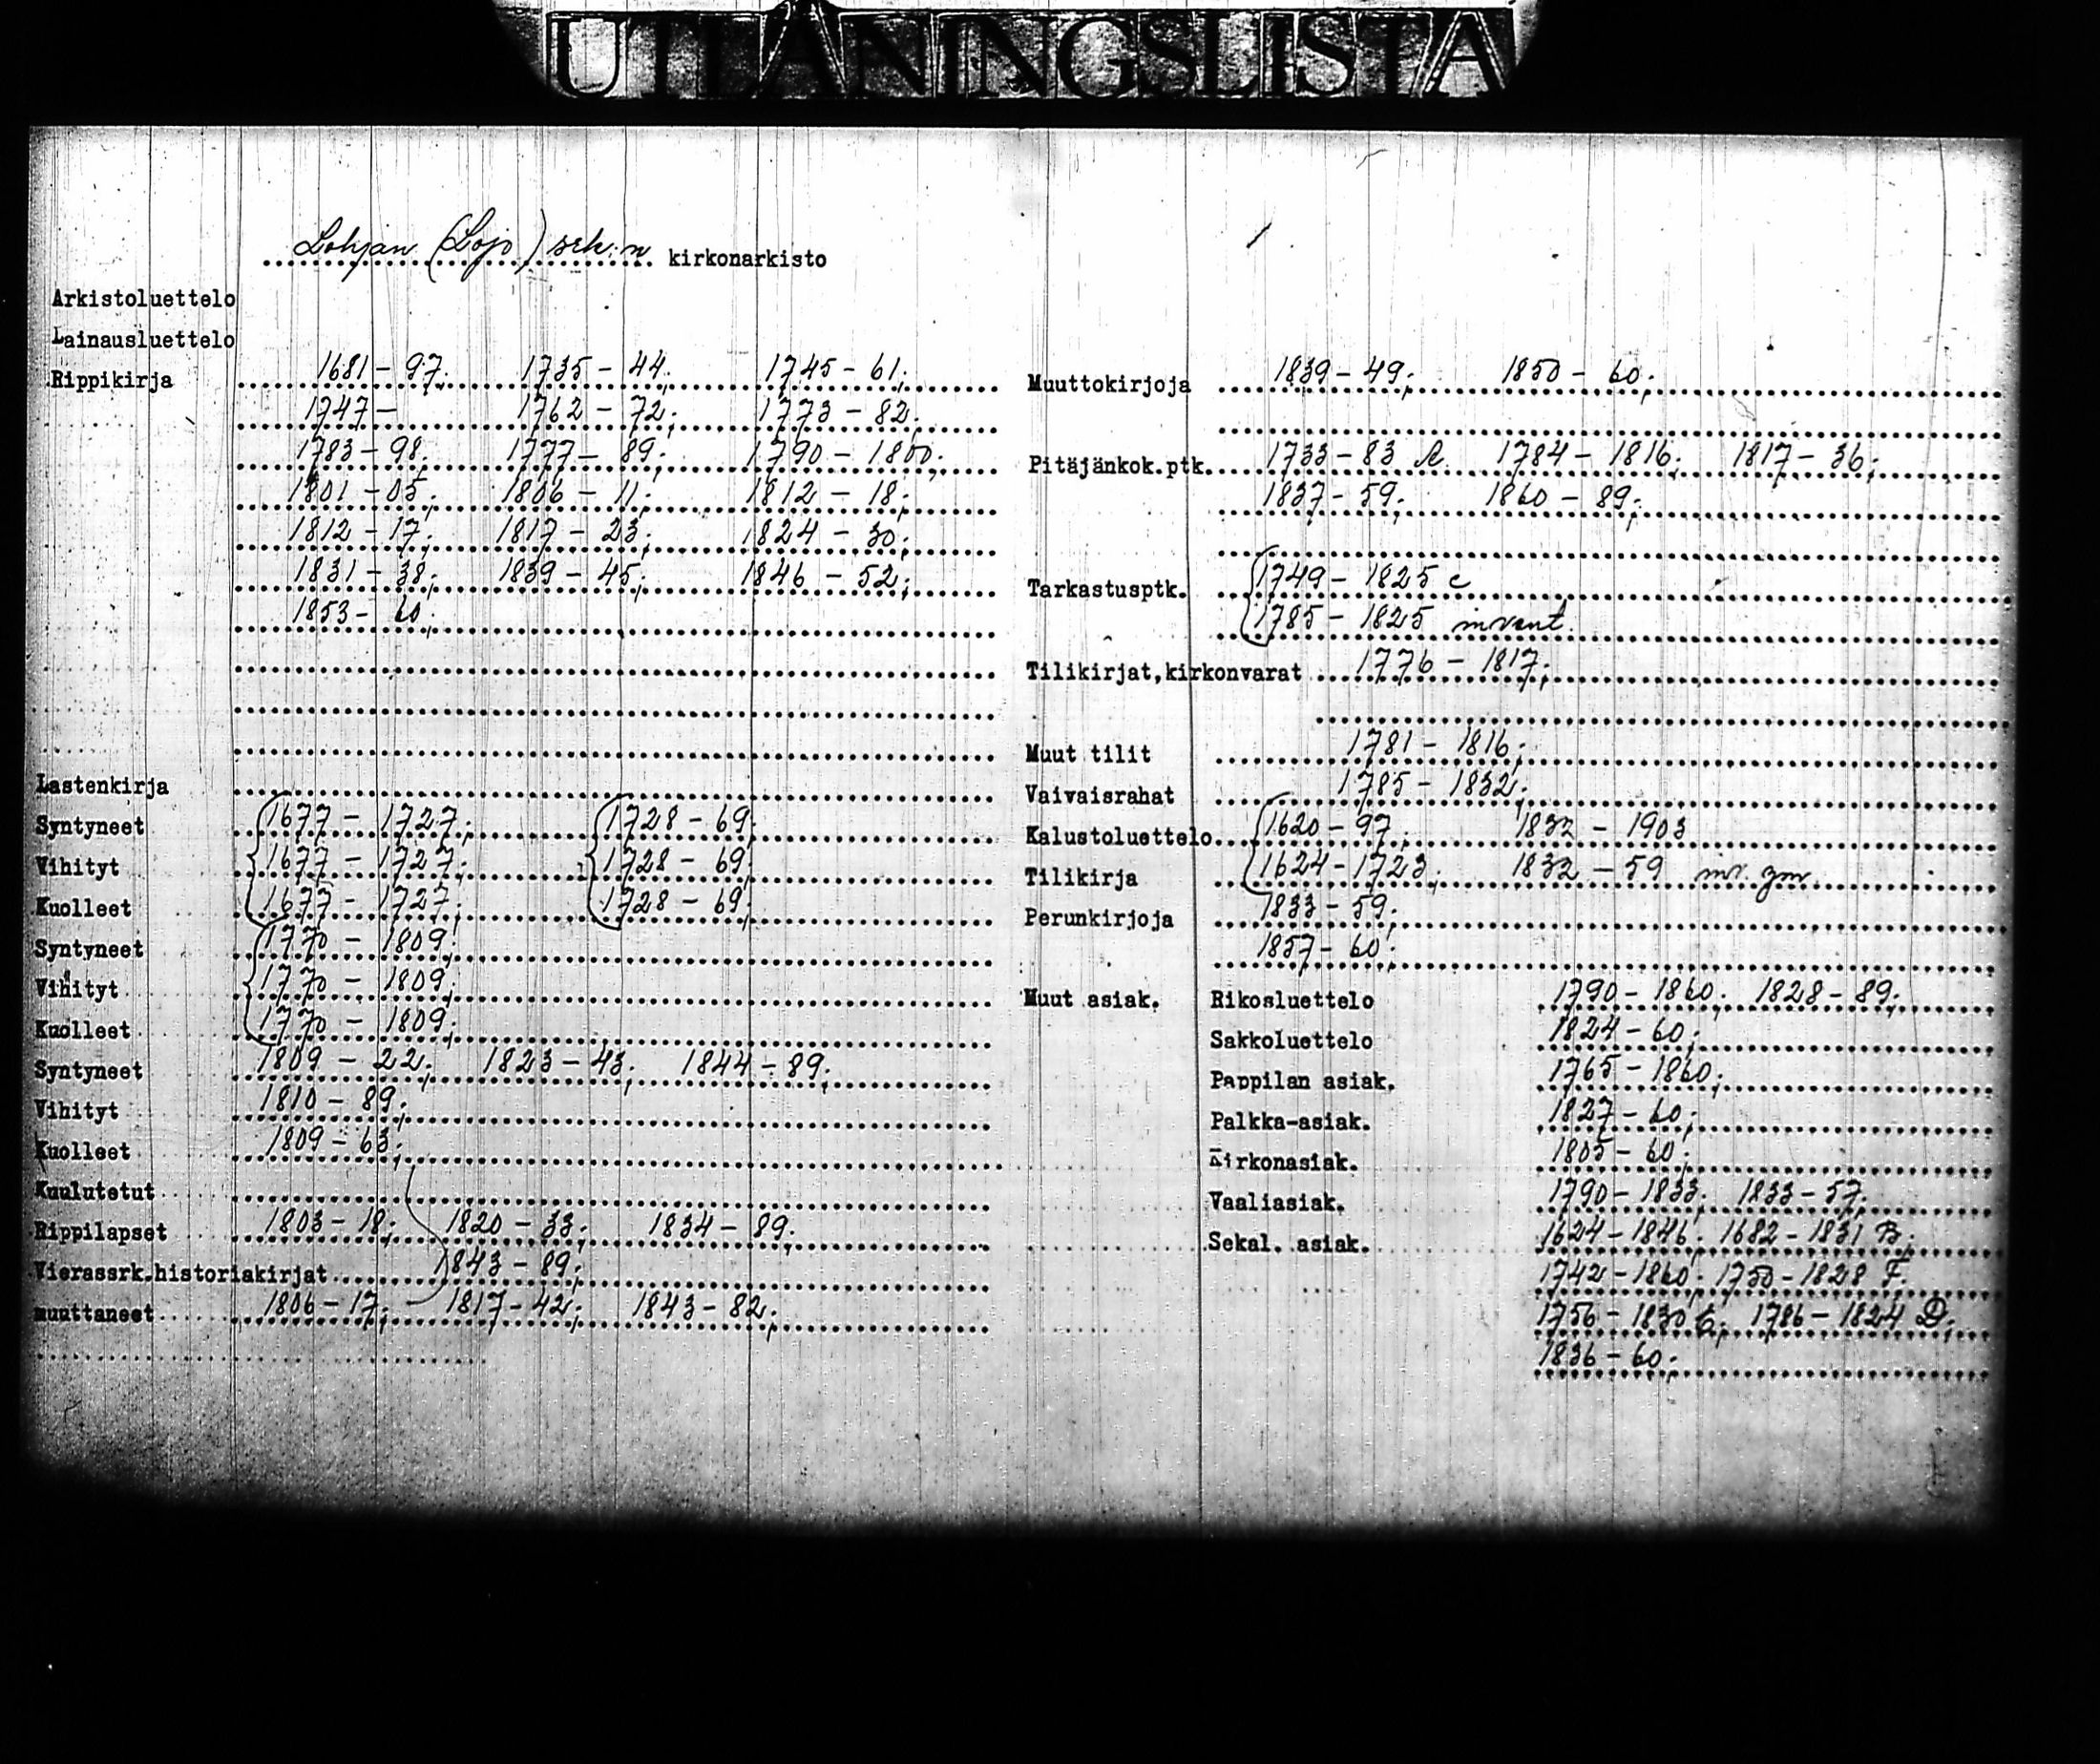 UTLÅNINGSLISTA
Lohjan (Lojo) srk:n kirkonarkisto
Arkistoluettelo
Lainausluettelo
Rippikirja 1681-97; 1735-44; 1745-61;
1747- 1762-72; 1773-82;
1783-98; 1777-89; 1790-1800;
1801-05; 1806-11; 1812-18;
1812-17; 1817-23; 1824-30;
1831-38; 1839-45; 1846-52;
1853-60;
Lastenkirja
Syntyneet 1677-1727; 1728-69;
Vihityt 1677-1727; 1728-69;
Kuolleet 1677-1727; 1728-69;
Syntyneet 1770-1809;
Vihityt 1770-1809;
Kuolleet 1770-1809;
Syntyneet 1809-22; 1823-43; 1844-89;
Vihityt 1810-89;
Kuolleet 1809-63;
Kuulutetut
Rippilapset 1803-18; 1820-33; 1834-89;
Vierassrk.historiakirjat 1843-89;
muuttaneet 1806-17; 1817-42; 1843-82;
Muuttokirjoja 1839-49; 1850-60;
Pitäjänkok.ptk. 1733-83 A. 1784-1816; 1817-36;
1837-59; 1860-89;
Tarkastusptk. 1749-1825 c
1785-1825 invent.
Tilikirjat,kirkonvarat 1776-1817;
Muut tilit 1781-1816;
Vaivaisrahat 1785-1832;
Kalustoluettelo 1620-97; 1832-1903
Tilikirja 1624-1723; 1832-59
Perunkirjoja 1833-59;
1857-60;
Muut asiak. Rikosluettelo 1790-1860; 1828-89;
Sakkoluettelo 1824-60;
Pappilan asiak. 1765-1860;
Palkka-asiak. 1827-60;
Kirkonasiak. 1805-60;
Vaaliasiak. 1790-1833; 1833-57;
Sekal. asiak. 1624-1846; 1682-1831 B;
1742-1860; 1750-1828 F.
1756-1830 G; 1786-1824 D;
1836-60;